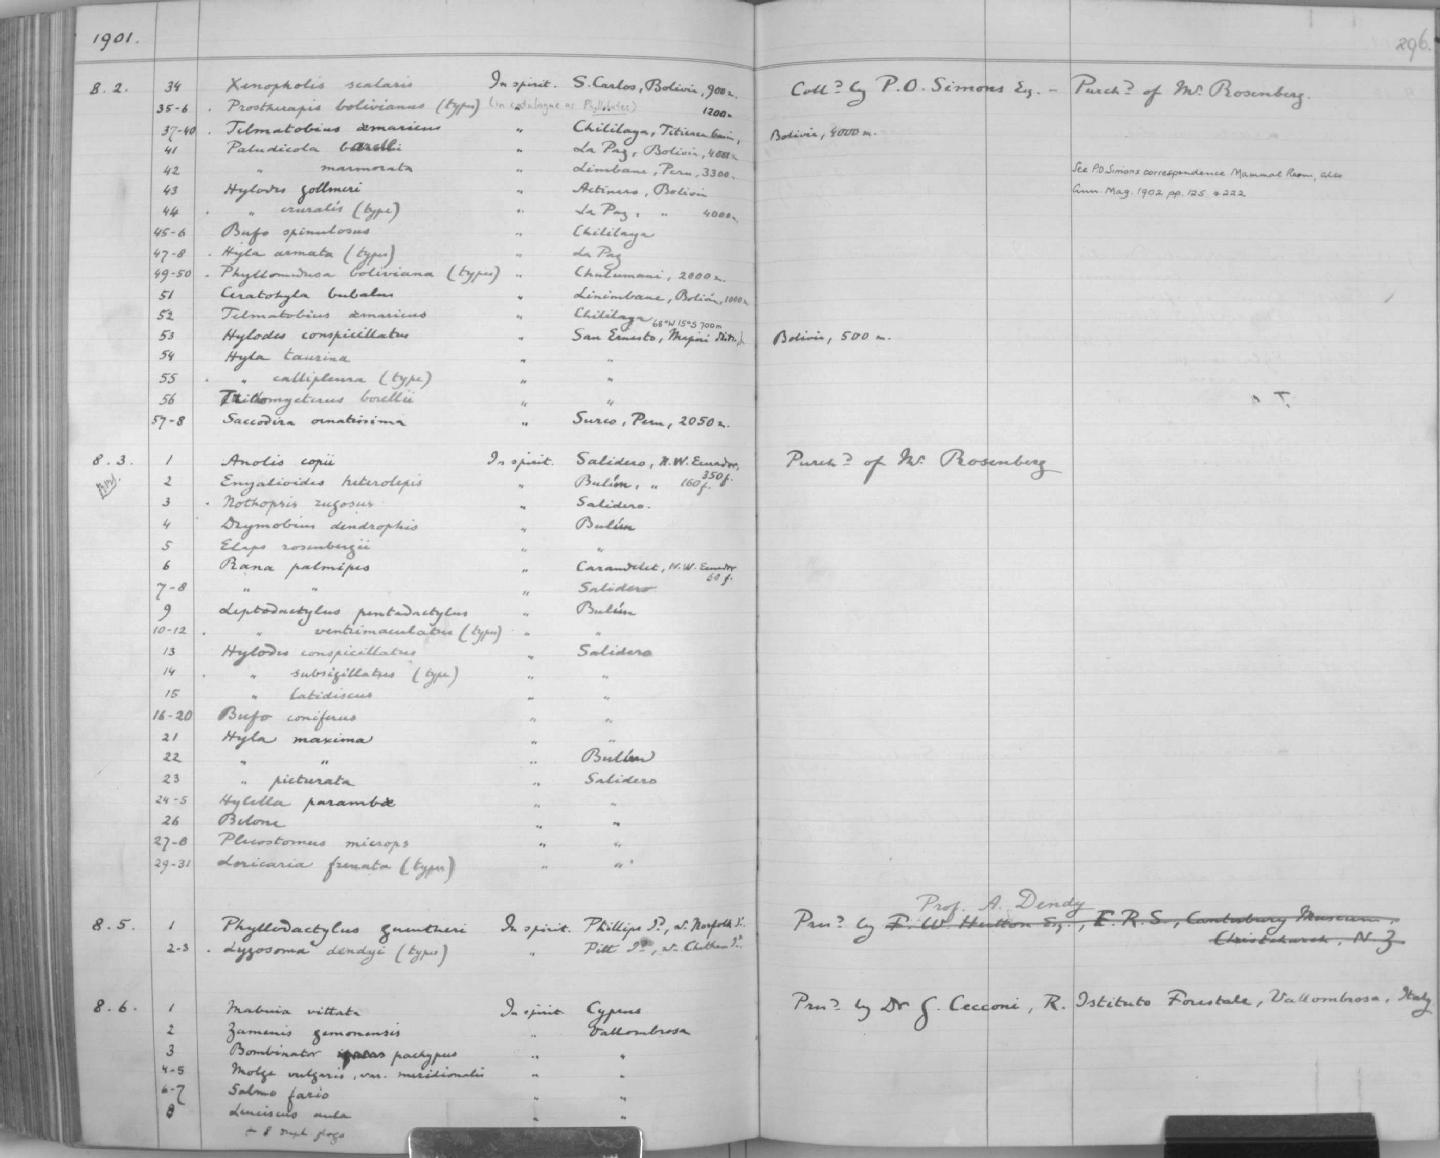 1901. 296.
8.2. 34 Xenopholis scalaris In spirit. S. Carlos, Bolivia, 900 m. Coll.d by P.O. Simons Esq. – Purch.d of Mr. Rosenberg.
35-6 . Prostherapis bolivianus (types) (in catalogue as Phyllobates) " 1200 m
37-40 . Telmatobius æmaricus " Chililaya, Titicaca Bolivia, 4000 m.
41 Paludicola borellii " La Paz, Bolivia, 4000 m
42 " marmorata " Limbane, Peru, 3300 m. See P.O. Simons correspondence Mammal Room, also
43 Hylodes gollmeri " Actinero, Bolivia Ann. Mag. 1902 pp. 125 & 222
44 . " cruralis (type) " La Paz, " 4000 m.
45-6 Bufo spinulosus " Chililaya
47-8 . Hyla armata (types) " La Paz
49-50 . Phyllomedusa boliviana (types) " Chulumani, 2000 m.
51 Ceratohyla bubalus " Linimbane, Bolivia, 1000 m
52 Telmatobius æmaricus " Chililaya
68°W 15°S 700m
53 Hylodes conspicillatus " San Ernesto, Mapiri Distr., Bolivia, 500 m.
54 Hyla taurina " "
55 . " callipleura (type) " "
56 Trichomycterus borellii " "
57-8 Saccodira ornatissima " Surco, Peru, 2050 m.
8.3. 1 Anolis copii In spirit. Salidero, N.W. Ecuador, 350 f. Purch.d of Mr. Rosenberg
2 Enyalioides heterolepis " Bulún, " 160 f.
3 . Nothopsis rugosus " Salidero.
4 Drymobius dendrophis " Bulún
5 Elaps rosenbergii " "
6 Rana palmipes " Carondelet, N.W. Ecuador 60 f.
7-8 " " " Salidero
9 Leptodactylus pentadactylus " Bulún
10-12 . " ventrimaculatus (types) " "
13 Hylodes conspicillatus " Salidero
14 . " subsigillatus (type) " "
15 " latidiscus " "
16-20 Bufo coniferus " "
21 Hyla maxima " "
22 " " " Bulún
23 " picturata " Salidero
24-5 Hylella parambæ " "
26 Belone " "
27-8 Plecostomus microps " "
29-31 Loricaria frenata (types) " "
Prof. A. Dendy
8.5. 1 Phyllodactylus guentheri In spirit. Phillips Id., nr. Norfolk Id. Pres.d by F. W. Hutton Esq., F.R.S., Canterbury Museum,
Christchurch, N.Z
2-3 . Lygosoma dendyi (types) " Pitt Id., nr. Chatham Id.
8.6. 1 Mabuia vittata In spirit Cyprus Pres.d by Dr G. Cecconi, R. Istituto Forestale, Vallombrosa, Italy
2 Zamenis gemonensis " Vallombrosa
3 Bombinator pachypus " "
4-5 Molge vulgaris, var. meridionalis " "
6-7 Salmo fario " "
8 Leuciscus aula " "
+ 8 dupl. frogs